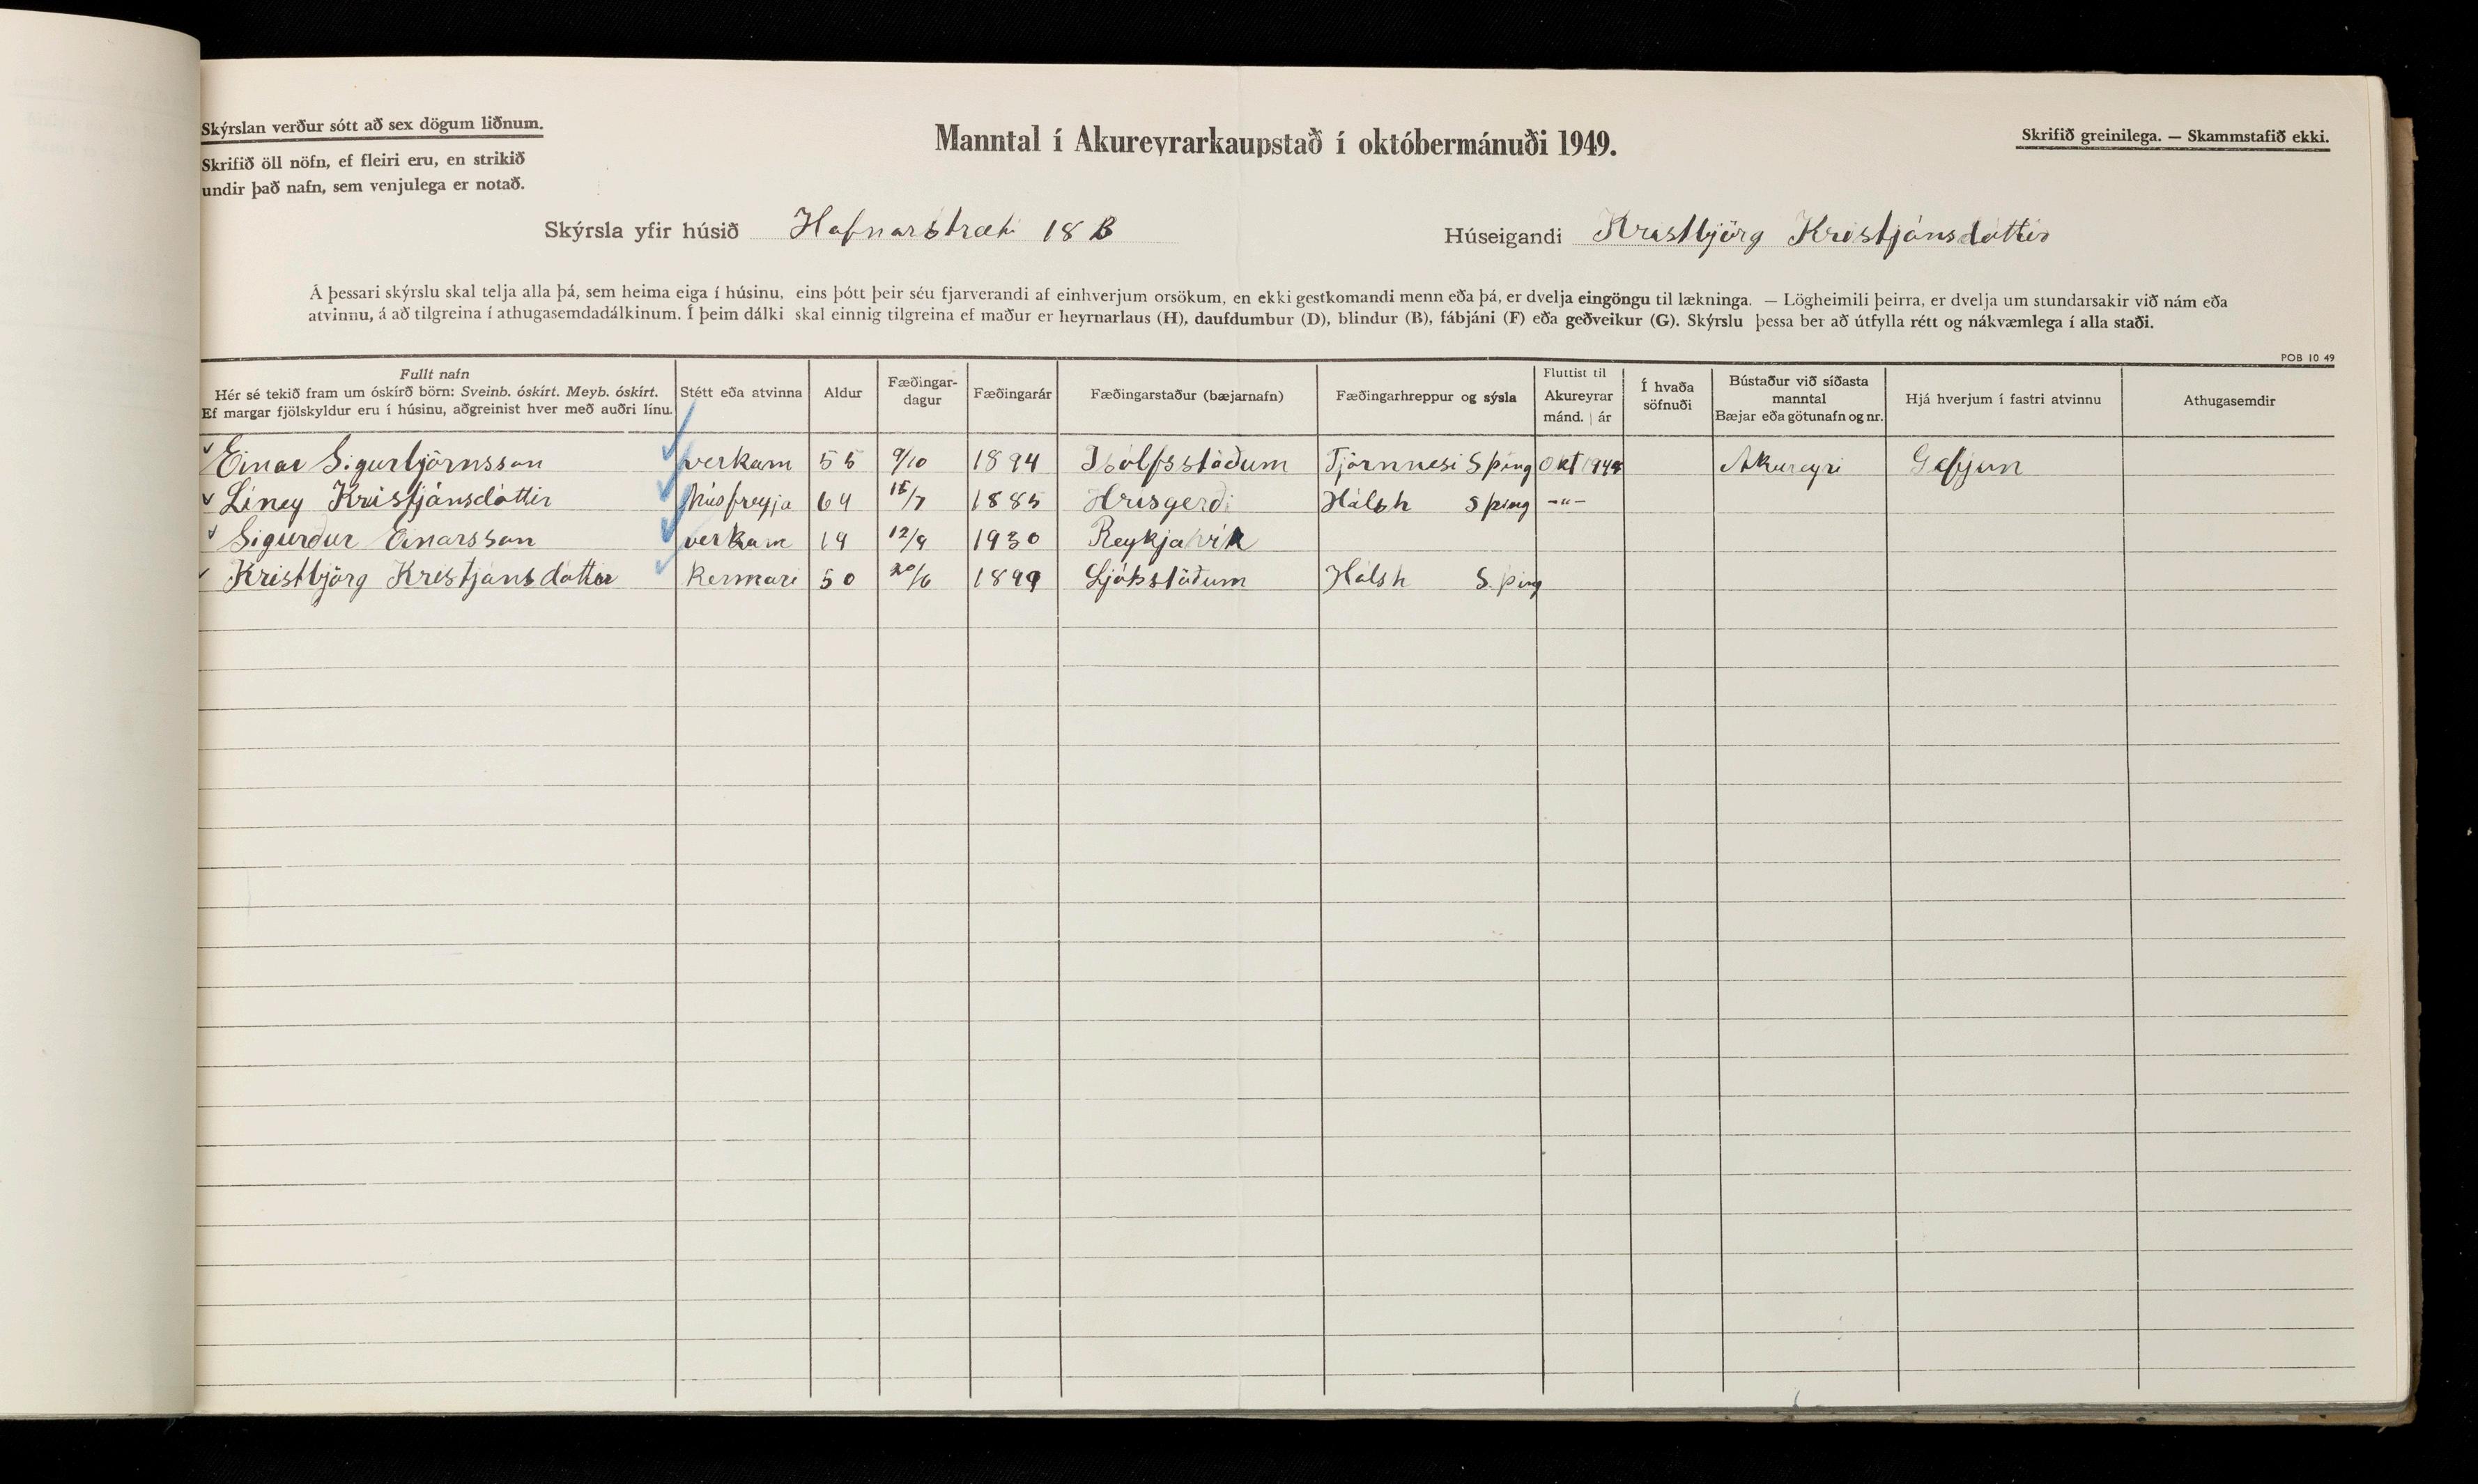 Skýrslan verður sótt að sex dögum liðnum.
Skrifið öll nöfn, ef fleiri eru, en strikið
undir það nafn, sem venjulega er notað.
Manntal í Akureyrarkaupstað í októbermánuði 1949.
Skrifið greinilega. — Skammstafið ekki.
Skýrsla yfir húsið Hafnarstræti 18 B
Húseigandi Kristbjörg Kristjánsdóttir
Á þessari skýrslu skal telja alla þá, sem heima eiga í húsinu, eins þótt þeir séu fjarverandi af einhverjum orsökum, en ekki gestkomandi menn eða þá, er dvelja eingöngu til lækninga. — Lögheimili þeirra, er dvelja um stundarsakir við nám eða
atvinnu, á að tilgreina í athugasemdadálkinum. Í þeim dálki skal einnig tilgreina ef maður er heyrnarlaus (H), daufdumbur (D), blindur (B), fábjáni (F) eða geðveikur (G). Skýrslu þessa ber að útfylla rétt og nákvæmlega í alla staði.
POB 10 49
Fullt nafn
Hér sé tekið fram um óskírð börn: Sveinb. óskírt. Meyb. óskírt.
Ef margar fjölskyldur eru í húsinu, aðgreinist hver með auðri línu.
Stétt eða atvinna
Aldur
Fæðingar-
dagur
Fæðingarár
Fæðingarstaður (bæjarnafn)
Fæðingarhreppur og sýsla
Fluttist til
Akureyrar
mánd. | ár
Í hvaða
söfnuði
Bústaður við síðasta
manntal
Bæjar eða götunafn og nr.
Hjá hverjum í fastri atvinnu
Athugasemdir
Einar Sigurbjörnsson verkam 55 9/10 1894 Ísólfsstöðum Tjörnnesi S þing Okt 1948 Akureyri Gefjun
Líney Kristjánsdóttir húsfreyja 64 15/7 1885 Hrisgerði Hálsh S þing -"-
Sigurður Einarsson verkam 19 12/9 1930 Reykjavík
Kristbjörg Kristjánsdóttir Kennari 50 20/6 1899 Ljótsstöðum Hálsh S. þing